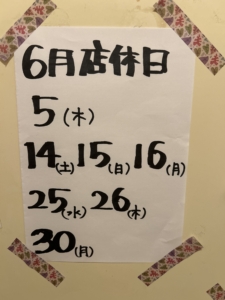 6月店休日
5(木)
14(土)15(日)16(月)
25(水)26(木)
30(月)